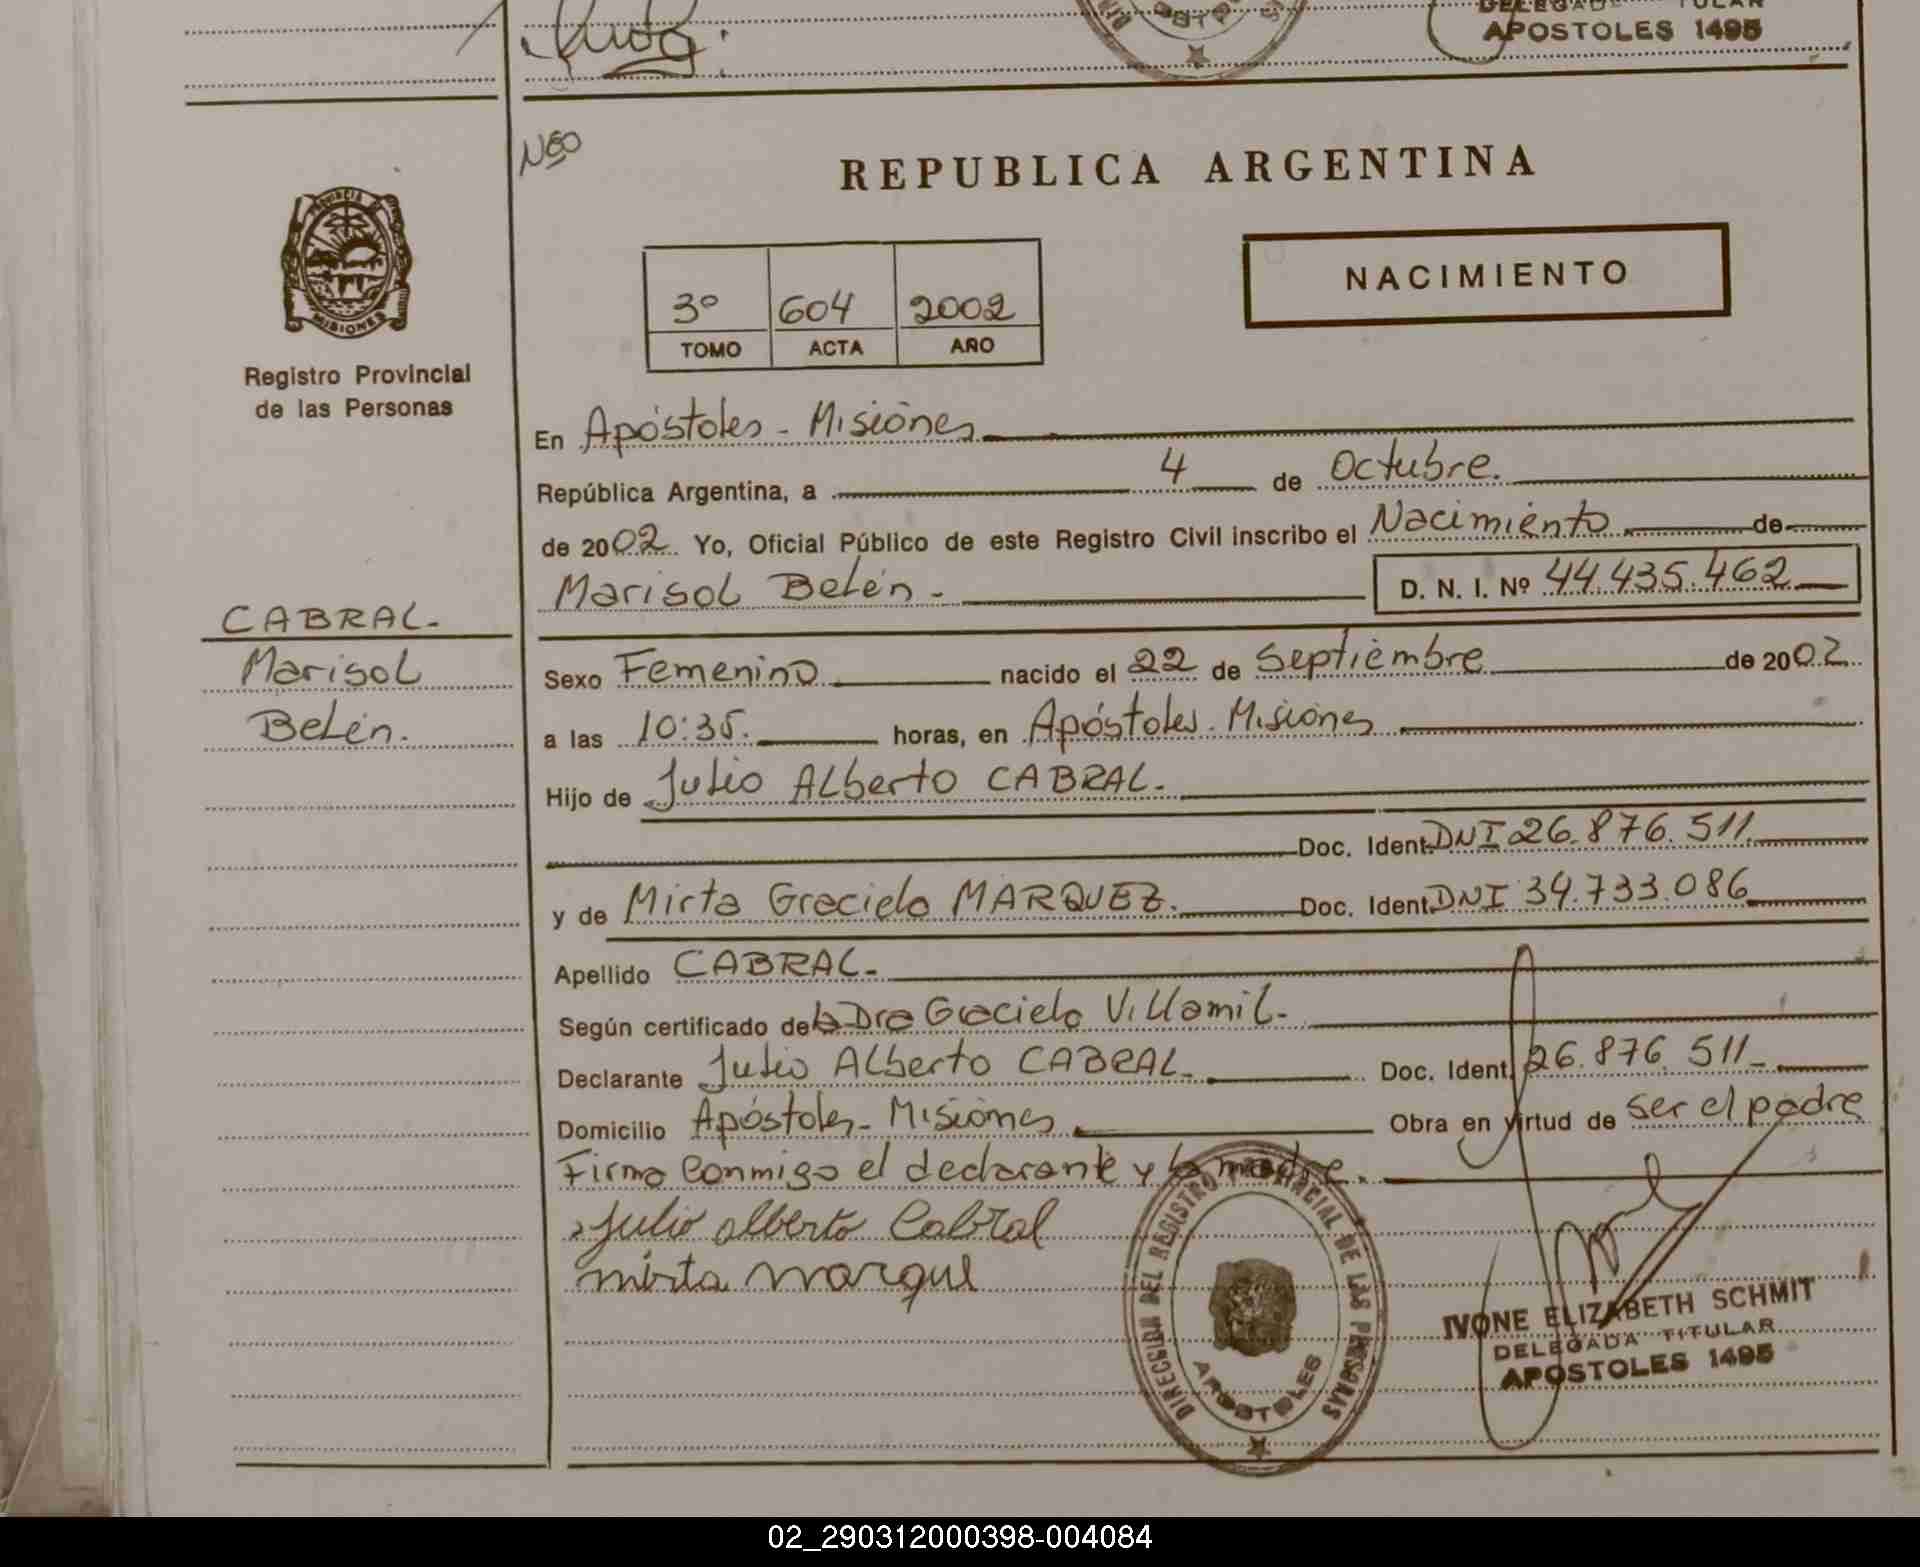 DELEGADA TITULAR
APOSTOLES 1495
REPUBLICA ARGENTINA
NACIMIENTO
3º 604 2002
TOMO ACTA AÑO
PROVINCIA DE
MISIONES
Registro Provincial
de las Personas
En Apóstoles - Misiones
República Argentina, a 4 de Octubre.
de 2002 Yo, Oficial Público de este Registro Civil inscribo el Nacimiento de
Marisol Belén - D. N. I. Nº 44.435.462
CABRAL-
Marisol
Belén.
Sexo Femenino nacido el 22 de Septiembre de 2002
a las 10:35. horas, en Apóstoles. Misiones
Hijo de Julio Alberto CABRAL.
Doc. Ident. DNI 26.876.511
y de Mirta Graciela MARQUEZ. Doc. Ident. DNI 34.733.086
Apellido CABRAL-
Según certificado de la Dra Graciela Villamil-
Declarante Julio Alberto CABRAL- Doc. Ident. 26.876.511-
Domicilio Apóstoles- Misiones Obra en virtud de ser el padre
Firma conmigo el declarante y la madre.
Julio alberto Cabral
mirta marque
DIRECCION DEL REGISTRO PROVINCIAL DE LAS PERSONAS
APOSTOLES
IVONE ELIZABETH SCHMIT
DELEGADA TITULAR
APOSTOLES 1495
02_290312000398-004084